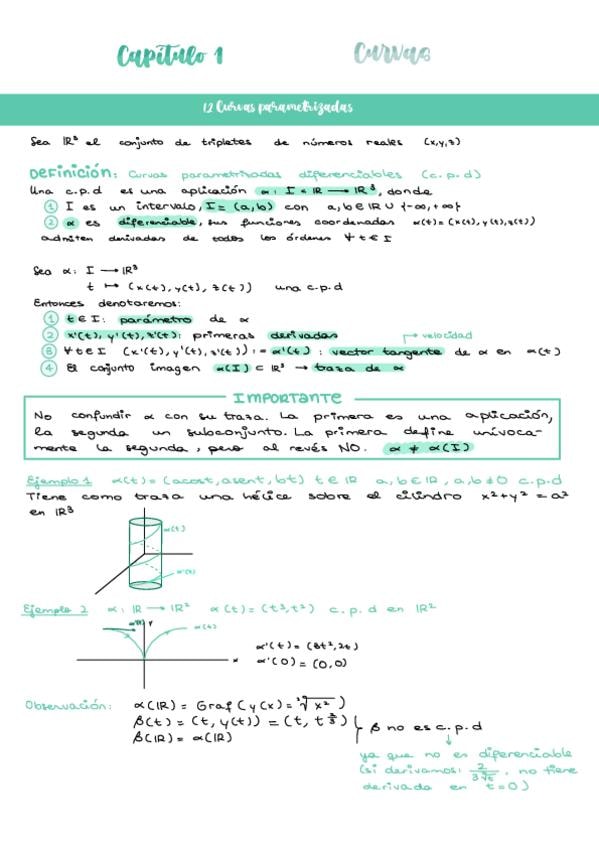 Capítulo 1 Curvas
1.2 Curvas parametrizadas
Sea ℝ³ el conjunto de tripletes de números reales (x,y,z)
DEFINICIÓN: Curvas parametrizadas diferenciables (c.p.d)
Una c.p.d es una aplicación α: I ⊂ ℝ → ℝ³, donde
① I es un intervalo, I = (a,b) con a,b ∈ ℝ ∪ {-∞, +∞}
② α es diferenciable, sus funciones coordenadas α(t) = (x(t), y(t), z(t))
admiten derivadas de todos los órdenes ∀ t ∈ I
Sea α: I → ℝ³
t ↦ (x(t), y(t), z(t)) una c.p.d
Entonces denotaremos:
① t ∈ I: parámetro de α
② x'(t), y'(t), z'(t): primeras derivadas
velocidad
③ ∀ t ∈ I (x'(t), y'(t), z'(t)) := α'(t) : vector tangente de α en α(t)
④ El conjunto imagen α(I) ⊂ ℝ³ → traza de α
IMPORTANTE
No confundir α con su traza. La primera es una aplicación,
la segunda un subconjunto. La primera define unívoca-
mente la segunda, pero al revés NO. α ≠ α(I)
Ejemplo 1 α(t) = (acost, asent, bt) t ∈ ℝ a,b ∈ ℝ, a,b ≠ 0 c.p.d
Tiene como traza una hélice sobre el cilindro x² + y² = a²
en ℝ³
α(t)
Ejemplo 2 α: ℝ → ℝ² α(t) = (t³, t²) c.p.d en ℝ²
y
x
α'(t) = (3t², 2t)
α'(0) = (0,0)
Observación: α(ℝ) = Graf (y(x) = ³√x²)
β(t) = (t, y(t)) = (t, t^⅔)
β(ℝ) = α(ℝ)
β no es c.p.d
↓
ya que no es diferenciable
(si derivamos: 2/(3 ³√t), no tiene
derivada en t=0)